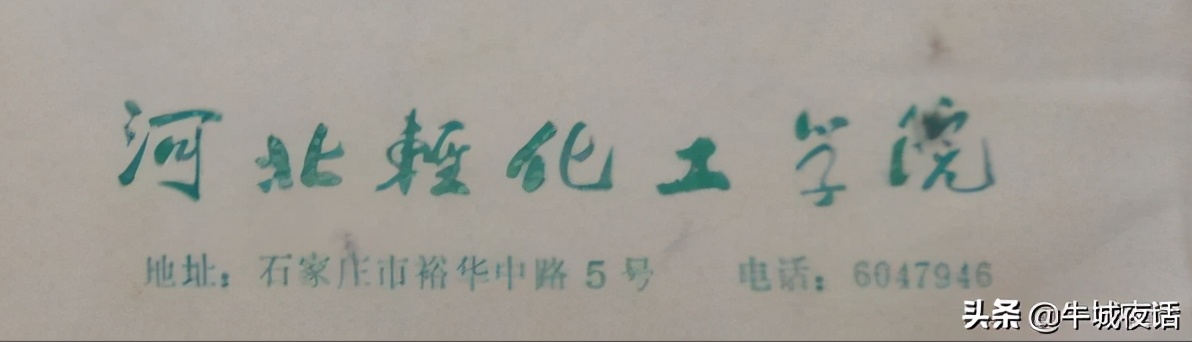 河北輕化工学院
地址：石家庄市裕华中路5号 电话：6047946
头条 @牛城夜话